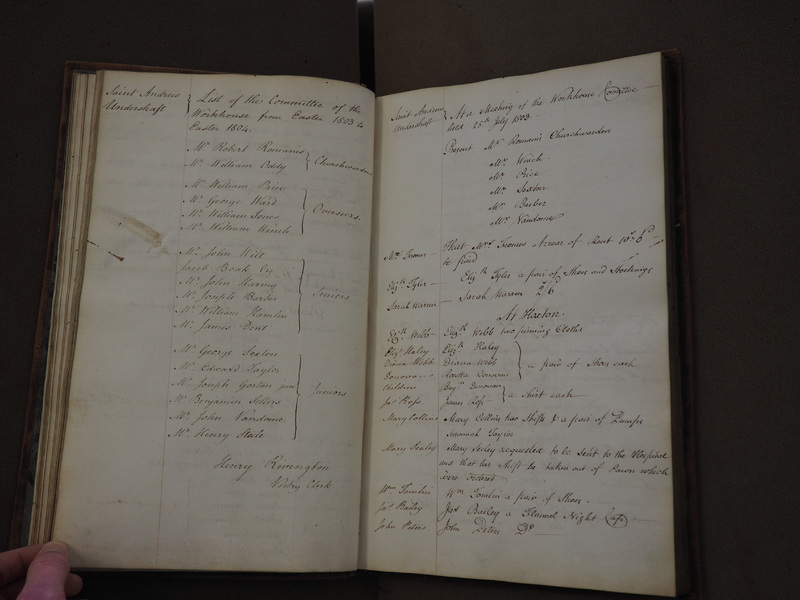 Saint Andrew Undershaft
List of the Committee of the
Workhouse from Easter 1803 to
Easter 1804.
Mr. Robert Romanis
Mr. William Oddy
Churchwardens
Mr. William Price
Mr. George Ward
Mr. William Jones
Mr. William Weirch
Overseers.
Mr. John Witt
Jacob Boak Esq
Mr. John Harvey
Mr. Joseph Barber
Mr. William Hamlin
Mr. James Dent
Seniors
Mr. George Sexton
Mr. Edward Taylor
Mr. Joseph Gorton jun
Mr. Benjamin Sellers
Mr. John Vandome
Mr. Henry Steele
Juniors
Henry Rivington
Vestry Clerk
Saint Andrew Undershaft
At a Meeting of the Workhouse Comittee
held 25th July 1803
Present Mr. Romanis Churchwarden
Mr. Price
Mr. Sexton
Mr. Barber
Mr. Vandome
That Mrs Arrear of Rent
be paid
Elizth Tyler
Elizth Tyler a pair of Shoes and Stockings
Sarah Warren
Sarah Warren 2/6
At Hoxton.
Elizth Webb
Elizth Webb two pinning Cloths
Elizth Haley
Elizth Haley
Diana Webb
Diana Webb
a pair of Shoes each
Donovan's
Donovan
Children
Donovan
a Shirt each
Jas Ross
James Ross
Mary Collins
Mary Collins two Shifts & a pair of
Mary Seeley
Mary Seeley requested to be Sent to the Hospital
and that her Shift be taken out of Pawn which
were Ordered
Wm Tomlin
Wm Tomlin a pair of Shoes.
Jas Bailey
Jas Bailey a Flannel Night Cap
John Peters
John Peters Do